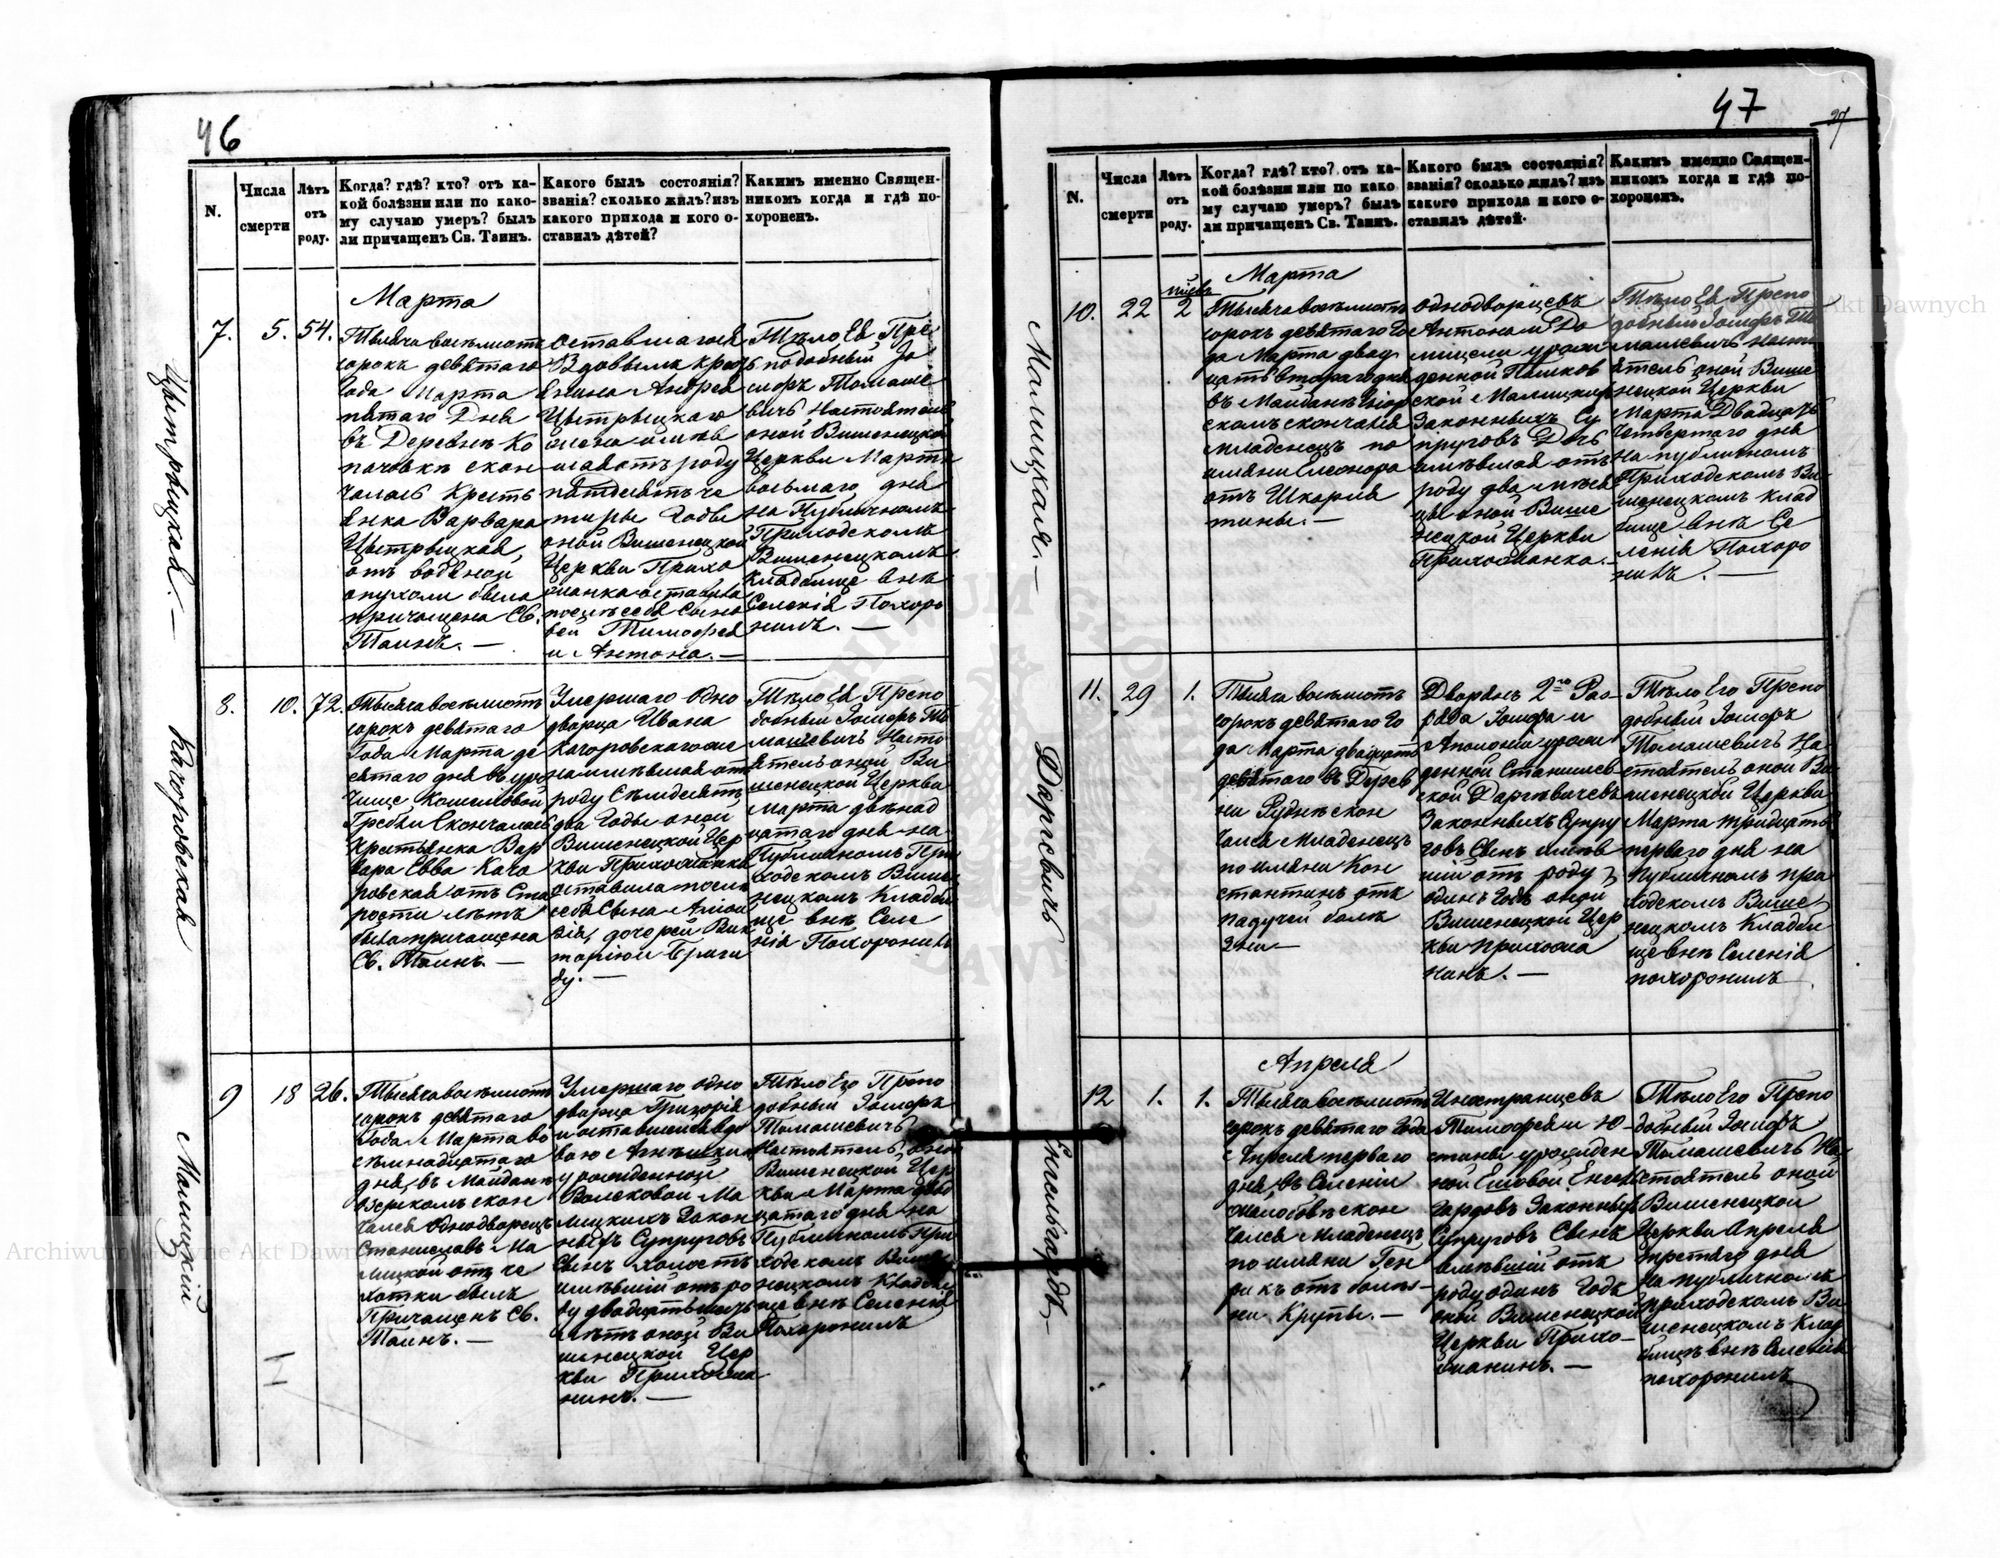 46
N.
Числа
смерти
Лѣтъ
отъ
роду.
Когда? гдѣ? кто? отъ ка-
кой болѣзни или по како-
му случаю умеръ? былъ
ли причащенъ Св. Таинъ.
Какого былъ состоянія?
званія? сколько жилъ? изъ
какого прихода и кого о-
ставилъ дѣтей?
Какимъ именно Священ-
никомъ когда и гдѣ по-
хороненъ.
Цытрыцкая. —
Марта
7.
5.
54.
Тысяча восемьсотъ
сорокъ девятаго
Года Марта
пятаго Дня
въ Деревнѣ Ко
пачовкѣ скон
чалась Кресть
янка Варвара
Цытрыцкая,
отъ водяной
опухоли была
причащена Св.
Таинъ. —
оставшагося
Вдовымъ Крест
янина Андрея
Цытрыцкаго
жена имѣв
шая отъ роду
пятдесятъ че
тыре Годы
оной Вишенецкой
Церкви Прихо
жанка оставила
послѣ себя Сыно
вей Тимофея
и Антона. —
Тѣло Ея Пре
подобный Іо
сифъ Томаше
вичъ Настоятель
оной Вишенецкой
Церкви Марта
восьмаго дня
на Публичномъ
Приходскомъ
Вишенецкомъ
Кладбище внѣ
Селенія Похоро
нилъ. —
Качоровская
8.
10.
72.
Тысяча восемьсотъ
сорокъ девятаго
Года Марта де
сятаго дня въ уро
чище Кошеловой
Гребли Скончалась
Крестьянка Вар
вара Евва Качо
ровская отъ Ста
рости лѣтъ
была причащена
Св. Таинъ. —
Умершаго Одно
дворца Ивана
Качоровскаго же
на имѣвшая отъ
роду Семьдесятъ
два Годы оной
Вишенецкой Цер
кви Прихожанка
оставила послѣ
себя Сына Алои
зія, дочерей Вик
торію и Бриги
ду. —
Тѣло Ея Препо
добный Іосифъ То
машевичъ Насто
ятель оной Ви
шенецкой Церкви
Марта двѣнад
цатаго дня на
Публичномъ При
ходскомъ Више
нецкомъ Кладби
ще внѣ Селе
нія Похоронилъ
Малицкій
9
18
26.
Тысяча восемьсотъ
сорокъ девятаго
Года Марта во
семнадцатаго
дня, въ Майданѣ
скон
чался Однодворецъ
Станиславъ Ма
лицкой отъ че
хотки былъ
Причащенъ Св.
Таинъ. —
Умершаго одно
дворца Григорія
и оставшейся вдо
вою
урожденной
Волсковой Ма
лицкихъ Закон
ныхъ Супруговъ
Сынъ холостъ
имѣвшій отъ ро
ду двадцать шесть
лѣтъ оной Ви
шенецкой Цер
кви Прихожа
нинъ. —
Тѣло Его Препо
добный Іосифъ
Томашевичъ
Настоятель оной
Вишенецкой Цер
кви Марта двад
цатаго дня на
Публичномъ При
ходскомъ Више
нецкомъ Кладби
ще внѣ Селенія
Похоронилъ
47
27
N.
Числа
смерти
Лѣтъ
отъ
роду.
Когда? гдѣ? кто? отъ ка-
кой болѣзни или по како
му случаю умеръ? былъ
ли причащенъ Св. Таинъ.
Какого былъ состоянія?
званія? сколько жилъ? изъ
какого прихода и кого о-
ставилъ дѣтей.
Какимъ именно Священ-
никомъ когда и гдѣ по-
хороненъ.
Малицкая. —
Марта
10.
22
2
Тысяча восемьсотъ
сорокъ девятаго Го
да Марта двад
цать втораго дня
въ Майданѣ
скомъ скончался
Младенецъ по
имяни Елеонора
отъ Шкарла
тины. —
однодворцевъ
Антона и До
мицели урож
денной Пашков
ской Малицкихъ
Законныхъ Су
пруговъ Дочь
имѣвшая отъ
роду два мѣся
цы оной Више
нецкой Церкви
Прихожанка. —
Тѣло Ея Препо
добный Іосифъ То
машевичъ Насто
ятель оной Више
нецкой Церкви
Марта Двадцать
Четвертаго дня
на публичномъ
Приходскомъ Ви
шенецкомъ клад
бище внѣ Се
ленія Похоро
нилъ. —
Даргевичъ
11.
29
1.
Тысяча восемьсотъ
сорокъ девятаго Го
да Марта двадцать
девятаго въ Дерев
ни Руднѣ скон
чался Младенецъ
по имяни Кон
стантинъ отъ
падучей болѣ
зни —
Дворянъ 2го Раз-
ряда Іосифа и
Аполоніи урож
денной Станишев
ской Даргевичевъ
Законныхъ Супру
говъ Сынъ имѣв
шій отъ роду
одинъ Годъ оной
Вишенецкой Цер
кви прихожа
нинъ. —
Тѣло Его Препо
добный Іосифъ
Томашевичъ На
стоятель оной Ви
шенецкой Церкви
Марта тридцать
перваго дня на
публичномъ при
ходскомъ Више
нецкомъ Кладби
ще внѣ Селенія
похоронилъ
Енгельгардъ,
Апреля
12
1.
1.
Тысяча восемьсотъ
сорокъ девятаго Года
Апреля перваго
дня, въ Селеніи
скон
чался Младенецъ
по имяни Ген
рикъ отъ болѣз-
ни Крупы. —
Иностранцевъ
Тимофея и Ю-
стины урожден
ной Енгель
гардовъ Законныхъ
Супруговъ Сынъ
имѣвшій отъ
роду одинъ Годъ
оной Вишенецкой
Церкви Прихо-
жанинъ. —
Тѣло Его Препо
добный Іосифъ
Томашевичъ На
стоятель оной
Вишенецкой
Церкви Апреля
третаго дня
на публичномъ
приходскомъ Ви
шенецкомъ Клад
бищѣ внѣ Селенія
похоронилъ
Archiwum Główne Akt Dawnych